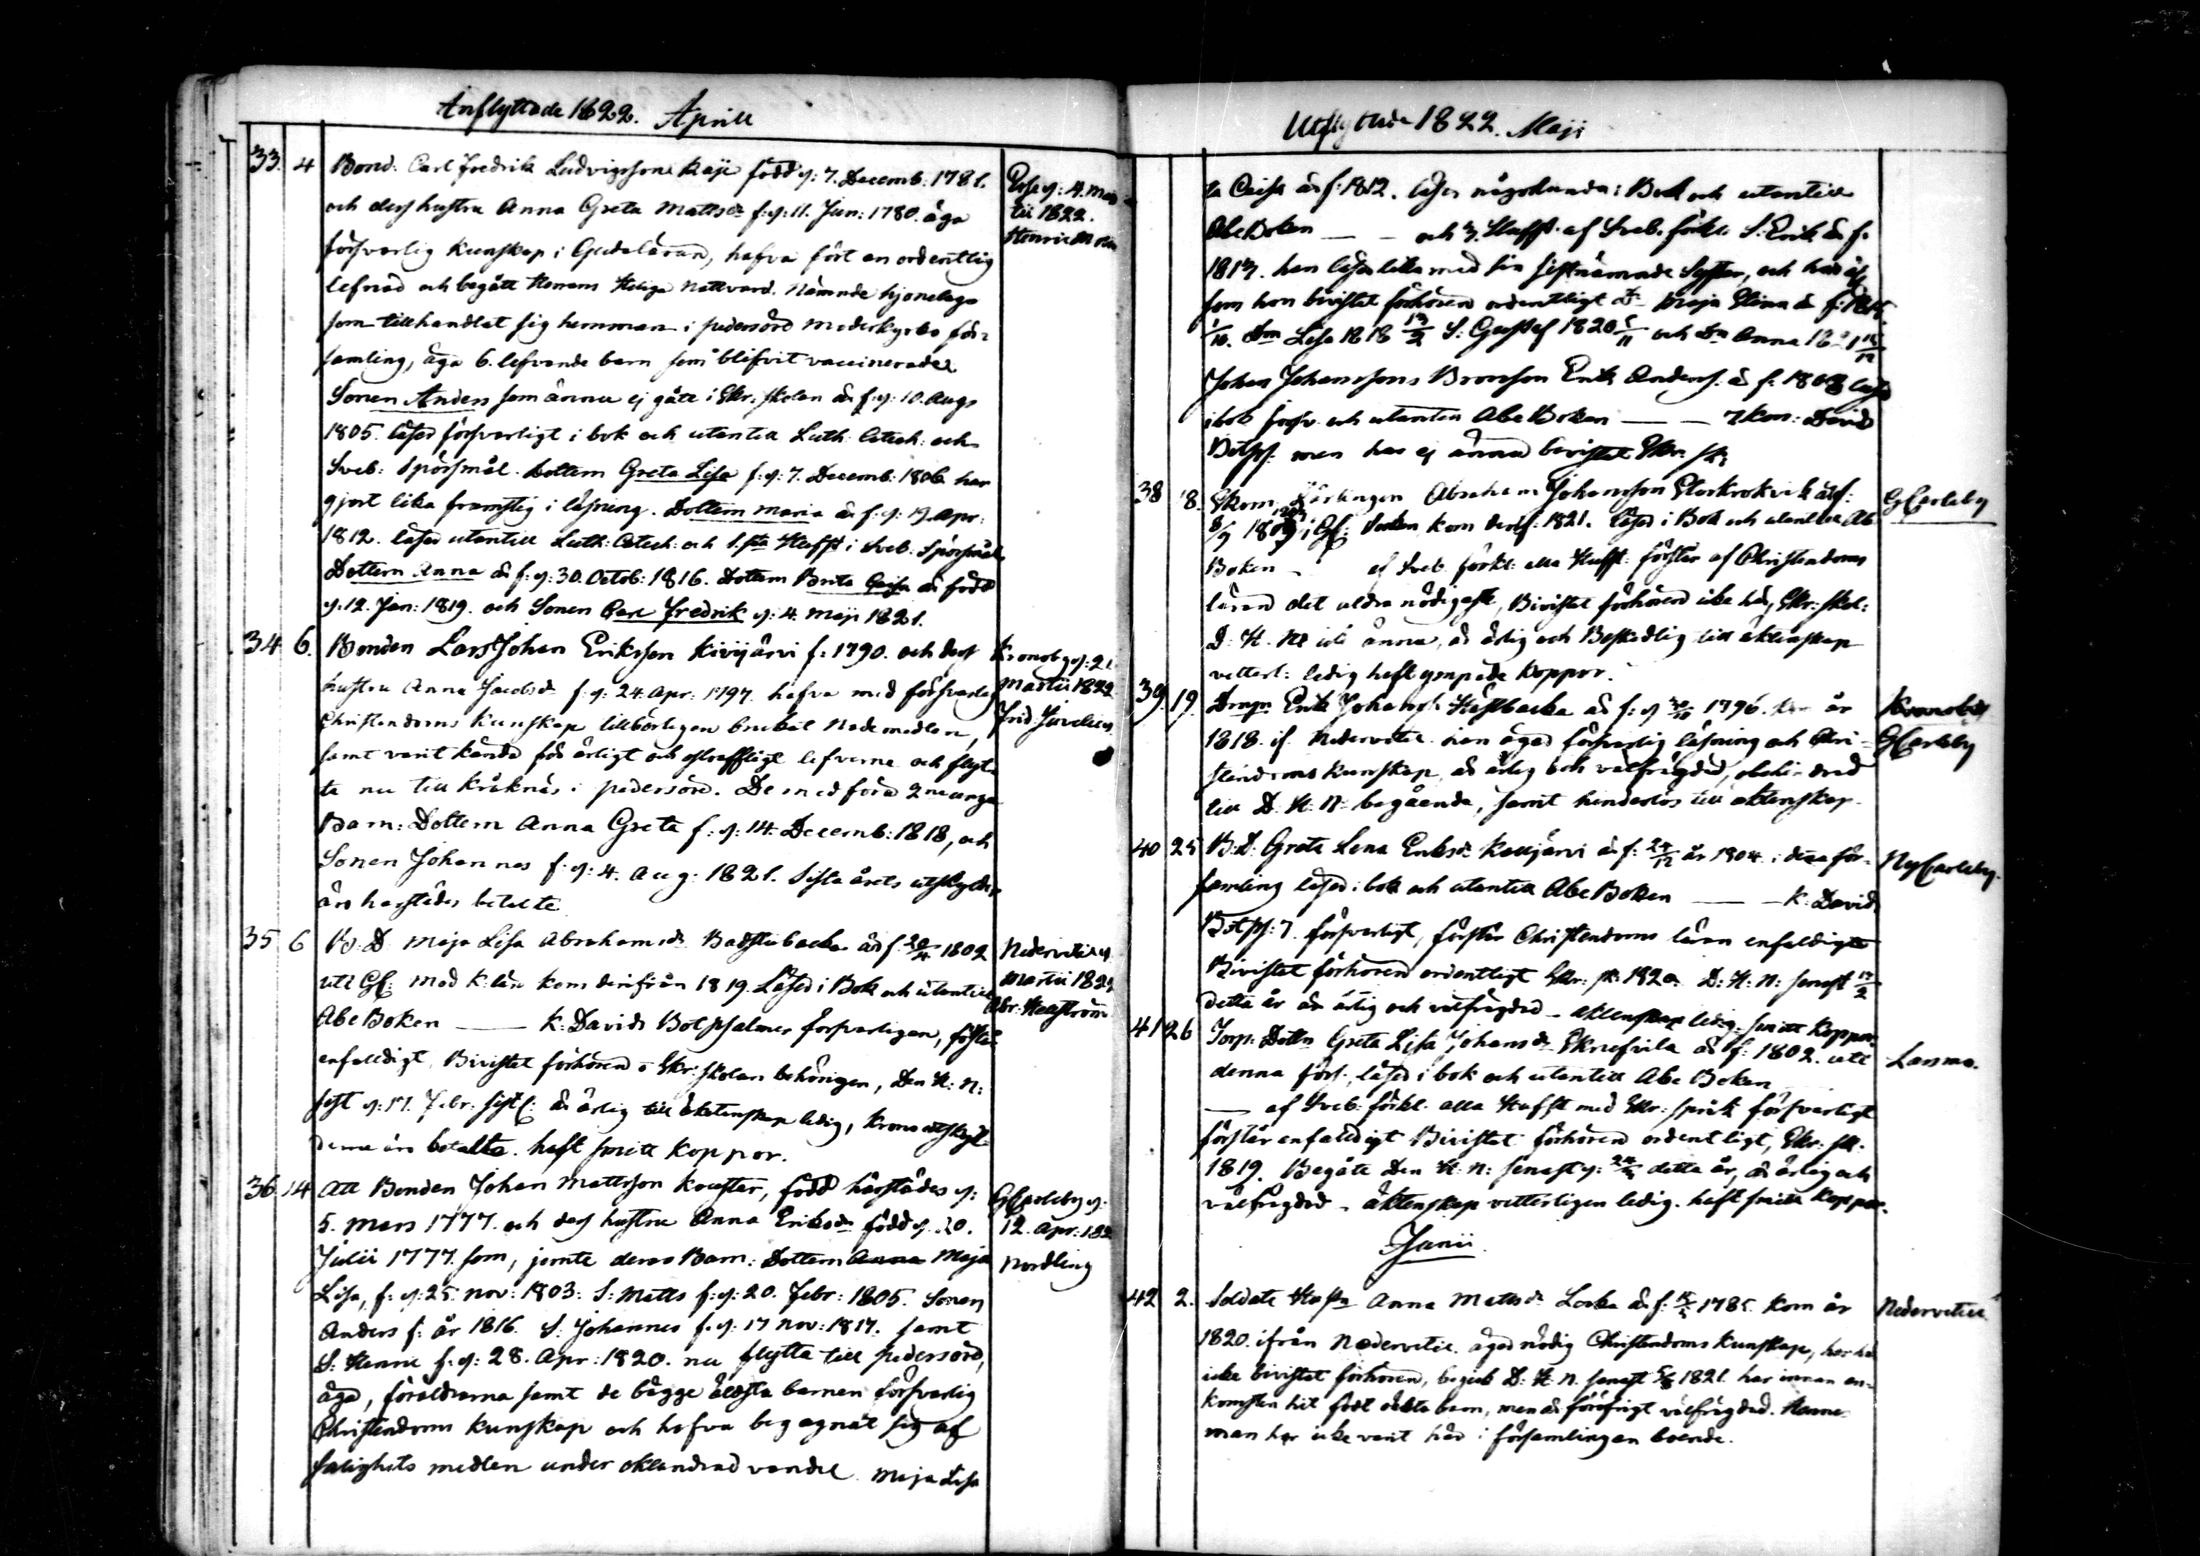 Anflyttade 1822. Aprill
33. 4 Bond. Carl Fredrik Ludvigssone Kaje född d: 7. Decemb: 1781.
och dess hustru Anna Greta Mattsdr f: d: 11. Jun: 1780. äga
försvarlig Kunskap i Gudaläran, hafva fört en ordentlig
lefnad och begått Herrans Heliga Nattvard. Nämnde hjonelage
som tillhandlat sig hemman i pedersöre moderkyrko för-
samling, äga 6. lefvande barn som blifvit vaccinerade
Sonen Anders som ännu ej gått i Skr. skolan är f: d: 10. Augs
1805. läser försvarligt i bok och utantill Luth: Catech: och
Sveb: Spörsmål. Dottern Greta Lisa f: d: 7. Decemb: 1806 har
gjort lika framsteg i läsning. Dottern Maria är f: d: 19. Apr:
1812. läser utantill Luth: Catech: och 1.sta Hufst i Sveb: Spörsmål
Dottern Anna är f: d: 30. Octob: 1816. Dottern Brita Caisa är född
d: 12. Jan: 1819. och Sonen Carl Fredrik d: 4. Maji 1821.
Esse d: 4. Mar
tii 1822.
Henric
34 6. Bonden Lars Johan Eriksson Kivijärvi f: 1790. och dess
hustru Anna Jacobsdr f: d: 24. Apr: 1797. hafva med försvarlig
Christendoms Kunskap tillbörligen brukat Nademedlen,
samt varit kände för ärligt och ostraffligt lefverne och flyt-
ta nu till Kråknäs i pedersöre. De medföra 2ne unga
Barn: Dottern Anna Greta f: d: 14. Decemb: 1818, och
Sonen Johannes f: d: 4. Aug: 1821. Sista årets utskylder
äro härstädes betalte
Kronoby d: 21
Martii 1822
Frid. Juvelius
35 6 B. D. Maja Lisa Abrahamsdr Badstubacka är f: 20/4 1802
uti GC: Mod K: län kom derifrån 1819. Läser i Bok och utantill
Abe Boken — K: Davids Botpsalmer försvarligen, förstår
enfaldigt, Bivistat förhören o Skr: Skolan behörigen, Den H: N:
sist d: 17. Febr: sistl: är ärlig till äktenskap ledig, Kronoutskyl-
derna äro betalta. haft smitt Koppor.
Nedervetil d.
Martii 1822
Abr: Hasström
36. 14 Att Bonden Johan Mattsson Kouster, född härstädes d:
5. Mars 1777. och dess hustru Anna Eriksdr född d. 20.
Julii 1777. som, jemte deras Barn: Dottern Anna Maja
Lisa, f: d: 25. nov: 1803. S: Matts f: d: 20. Febr: 1805. Sonen
Anders f: år 1816. S: Johannes f: d: 17 nov: 1817. samt
S: Henric f: d: 28. Apr: 1820. nu flytta till pedersöre,
äga, föräldrarna samt de bägge äldsta barnen försvarlig
Christendoms Kunskap och hafva begagnat sig af
salighets medlen under oklandrad vandel. Maja Lisa
GCarleby d.
12. Apr: 182
Nordling
Utflyttade 1822. Maji
ta Caisa är f: 1812. läser någorlunda i Bok och utantill
Abe Boken — — och 3. Hufst. af Sveb. förkl. S: Erik är f.
1813. han läser lika med sin sistnämnde Syster, och har äf
som hon bivistat förhören ordentligt Dr Maja Stina är f: 1815.
1/10. Drn Lisa 1818 13/2 S: Gustaf 1820 5/11 och Drn Anna 1821 15/12
Johan Johanssons Brorson Erik Anders. är f: 1808 läser
i bok försv. och utantill Abe Boken — — 7 Kon: David
Botps. men har ej ännu bevistat Skr. sk:
38 18. Skom. Lärlingen Abraham Johansson Storkrokvik är f:
8/9 1803 i GC: Socken kom derif: 1821. Läser i Bok och utantill Ab
Boken — af Sveb. förkl. alla Hufst: förstår af Christendoms
läran det aldra nödigaste, Bivistat förhören icke här, Skr: skol:
D. H. N: icke ännu, är ärlig och Beskedlig till äktenskap
vetterl: ledig haft ympade Koppor.
GCarleby
39. 19. Drngn Erik Johanss. Hästbacka är f: d 30/10 1796. kom år
1818. if. Nedervetil. han äger försvarlig läsning och Chri-
stendoms Kunskap, är ärlig och välfrägdad, obehindrad
till D. H. N: begående, samt hinderlös till äktenskap.
Kronoby
GCarleby
40 25 B. D. Greta Lena Eriksdr Kaujärvi är f: 24/12 år 1804. i denna för-
samling läser i bok och utantill Abe Boken — — K: Davids
Botps: 7. försvarligt, förstår Christendoms läran enfaldigt
Bivistat förhören ordentligt Skr: sk: 1820. D: H: N: senast 17/2
detta år är ärlig och välfrägdad — äktenskap ledig. smitt Koppor
NyCarleby.
41 26 Torp: Dottn Greta Lisa Johansdr Skrufvila är f: 1802. uti
denna förs: läser i bok och utantill Abe Boken
— af Sveb: förkl. alla Hufst med Skr: språk försvarligt
förstår enfaldigt Bivistat förhören ordentligt, Skr: sk.
1819. Begått Den H: N: senast d: 24/2 detta år, är ärlig och
välfrägdad — äktenskap vetterligen ledig. haft smitt Koppor.
Larsmo.
Junii
42 2. Soldats Hustn Anna Mattsdr Locka är f: 15/5 1785. Kom år
1820. ifrån Nedervetil. äger nödig Christendoms Kunskap, har här
icke bivistat förhören, begick D: H. N. senast 5/8 1821. har innan an-
komsten hit födt oäkta barn, men är föröfrigt välfrägdad. Hennes
man har icke varit här i församlingen boende.
Nedervetil